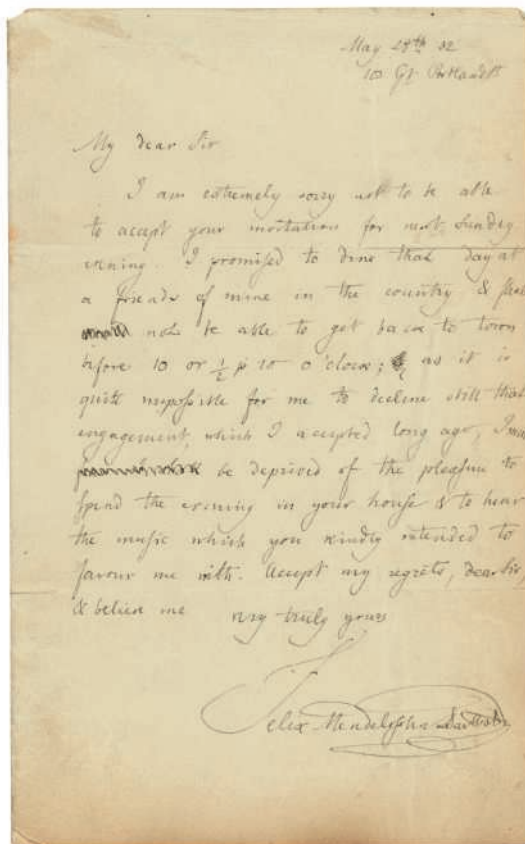 May 28th 32
103 Gt Portland St
My dear Sir
I am extremely sorry not to be able
to accept your invitation for next Sunday
evening. I promised to dine that day at
a friends of mine in the country & shall
not be able to get back to town
before 10 or ½ p 10 o'clock; as it is
quite impossible for me to decline still that
engagement, which I accepted long ago, I must
be deprived of the pleasure to
spend the evening in your house & to hear
the music which you kindly intended to
favour me with. Accept my regrets, dear Sir,
& believe me very truly yours
Felix Mendelssohn Bartholdy